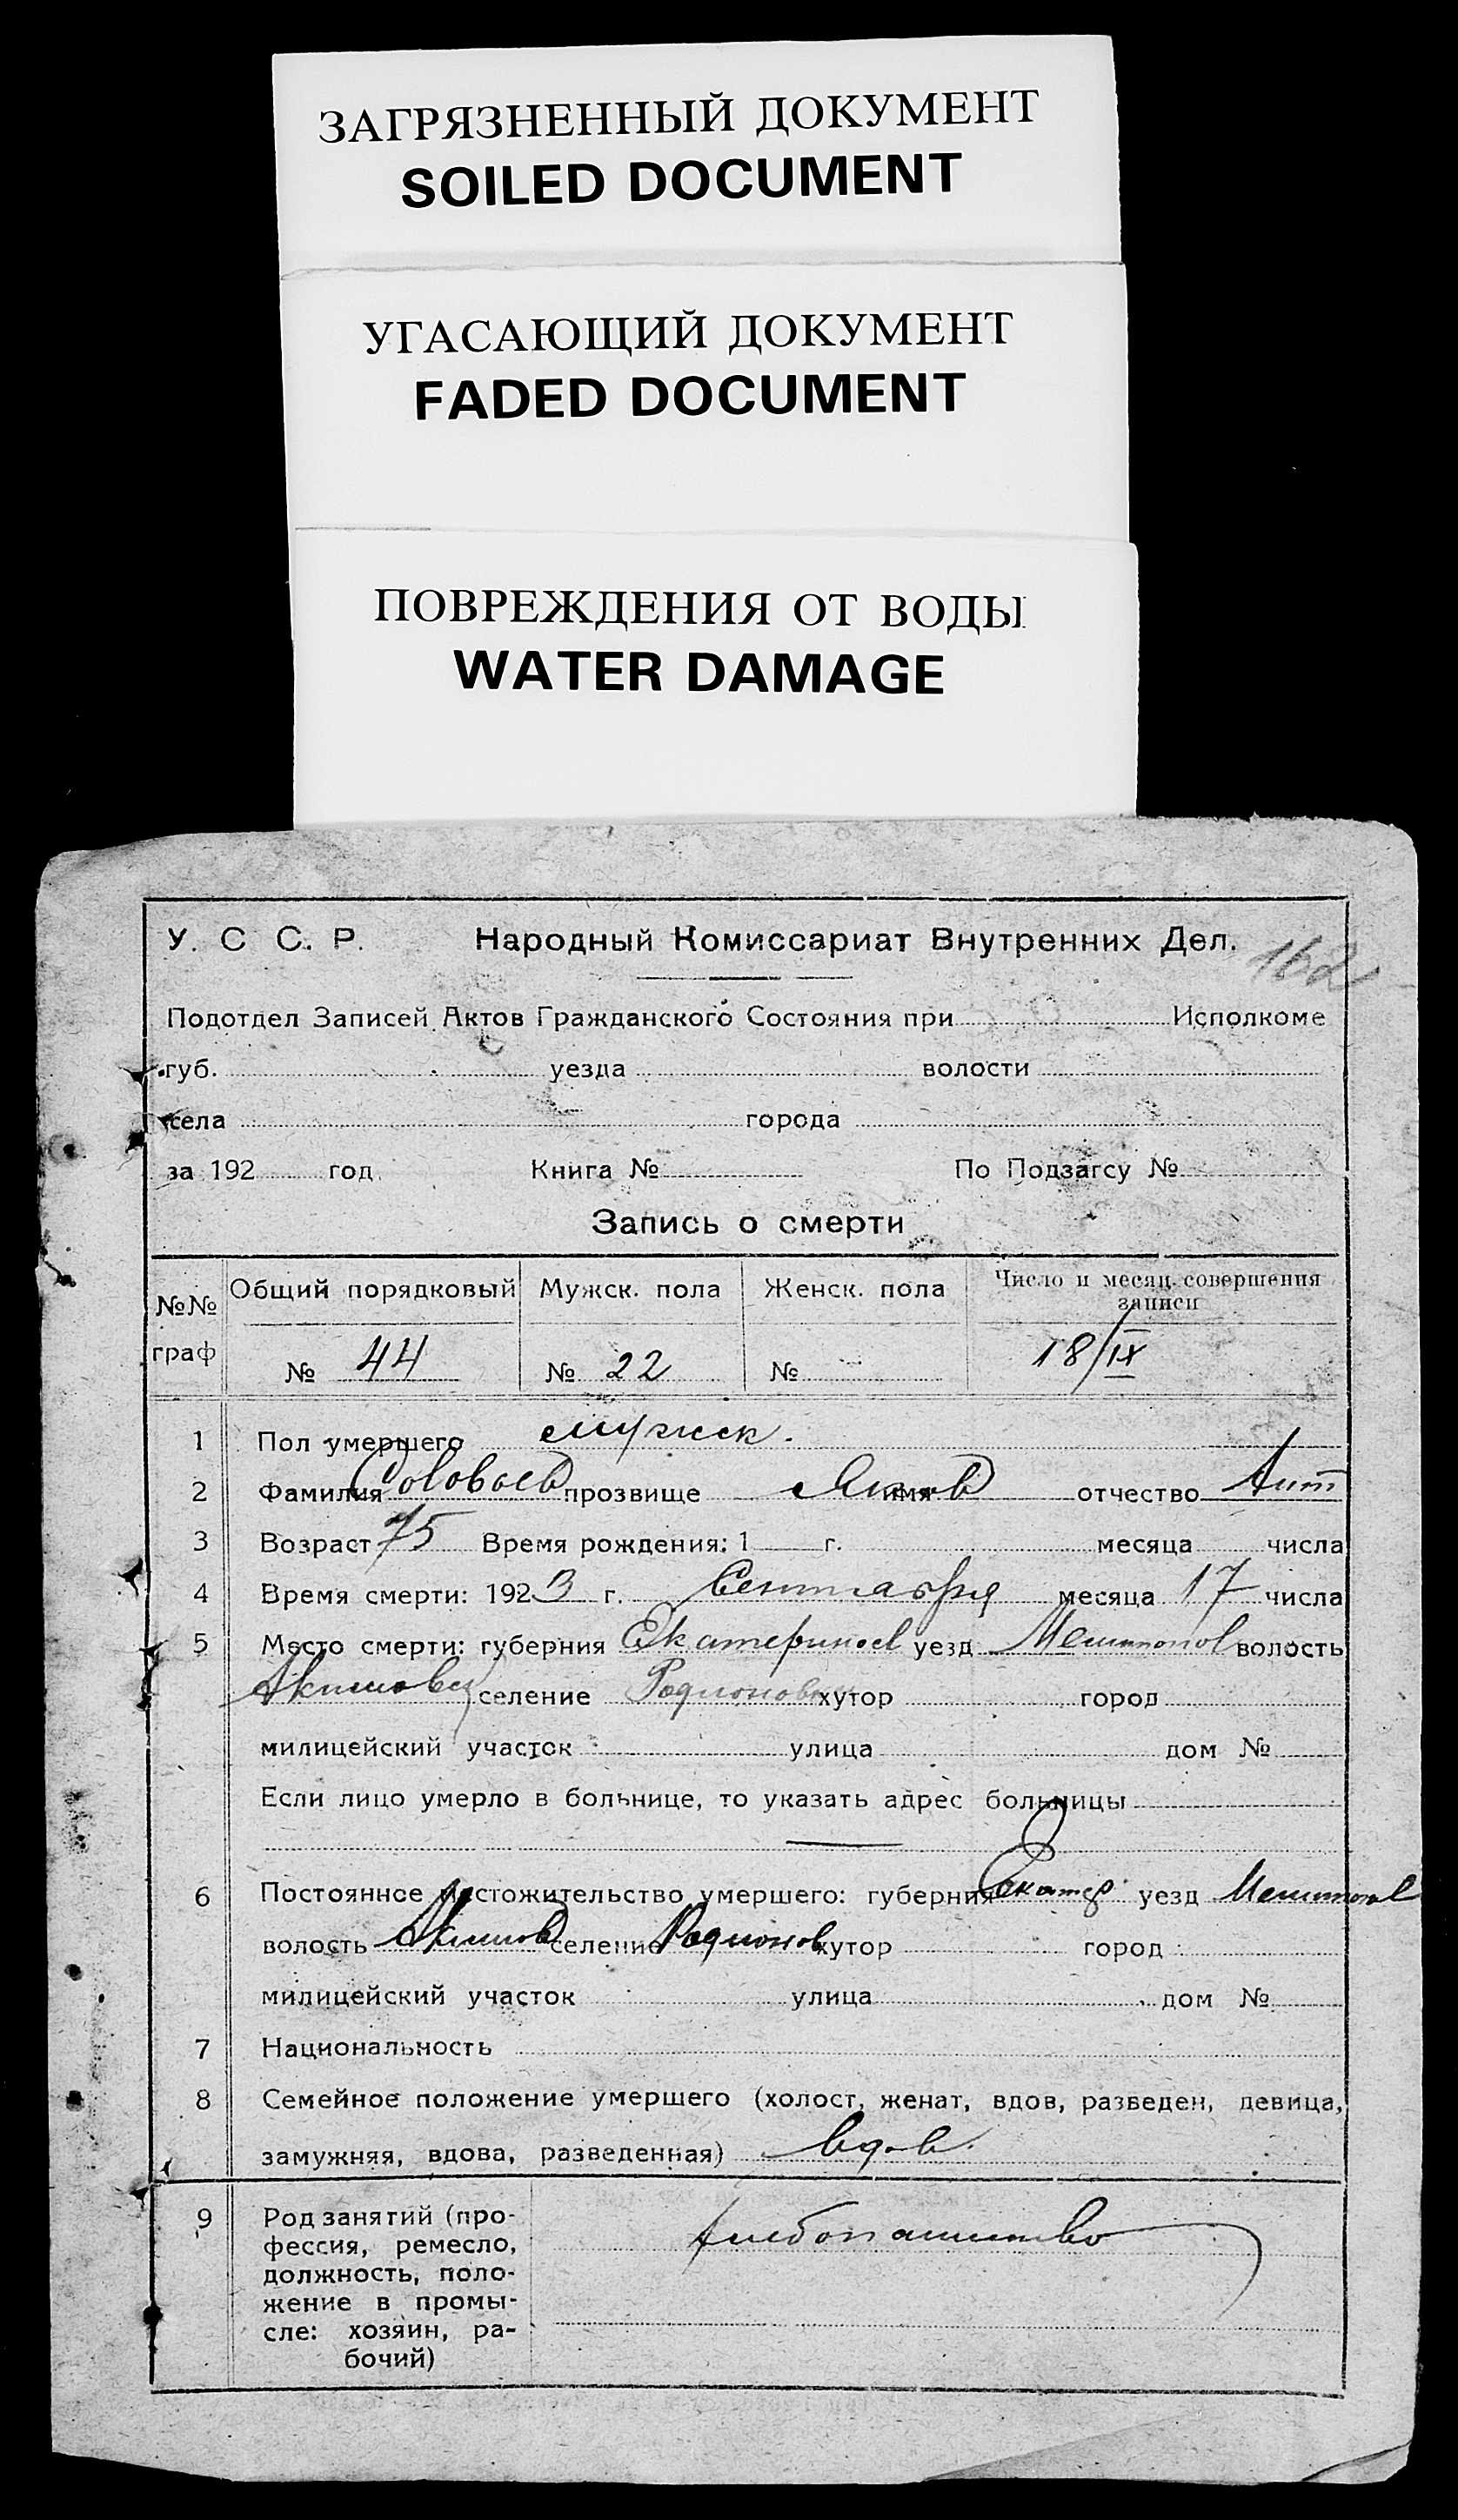 ЗАГРЯЗНЕННЫЙ ДОКУМЕНТ
SOILED DOCUMENT
УГАСАЮЩИЙ ДОКУМЕНТ
FADED DOCUMENT
ПОВРЕЖДЕНИЯ ОТ ВОДЫ
WATER DAMAGE
У. С. С. Р. Народный Комиссариат Внутренних Дел.
162
Подотдел Записей Актов Гражданского Состояния при Исполкоме
губ. уезда волости
села города
за 192 год Книга № По Подзагсу №
Запись о смерти
№№ граф Общий порядковый Мужск. пола Женск. пола Число и месяц совершения записи
№ 44 № 22 № 18/IX
1 Пол умершего мужск.
2 Фамилия Соловьев прозвище имя Яков отчество Ант
3 Возраст 75 Время рождения: 1 г. месяца числа
4 Время смерти: 1923 г. Сентября месяца 17 числа
5 Место смерти: губерния Екатериносл уезд Мелитопол волость
Акимовск селение Родионовк хутор город
милицейский участок улица дом №
Если лицо умерло в больнице, то указать адрес больницы
6 Постоянное местожительство умершего: губерния Екатер. уезд Мелитопол
волость Акимов селение Родионов хутор город
милицейский участок улица дом №
7 Национальность
8 Семейное положение умершего (холост, женат, вдов, разведен, девица,
замужняя, вдова, разведенная) вдов.
9 Род занятий (про-
фессия, ремесло, хлебопашество
должность, поло-
жение в промы-
сле: хозяин, ра-
бочий)